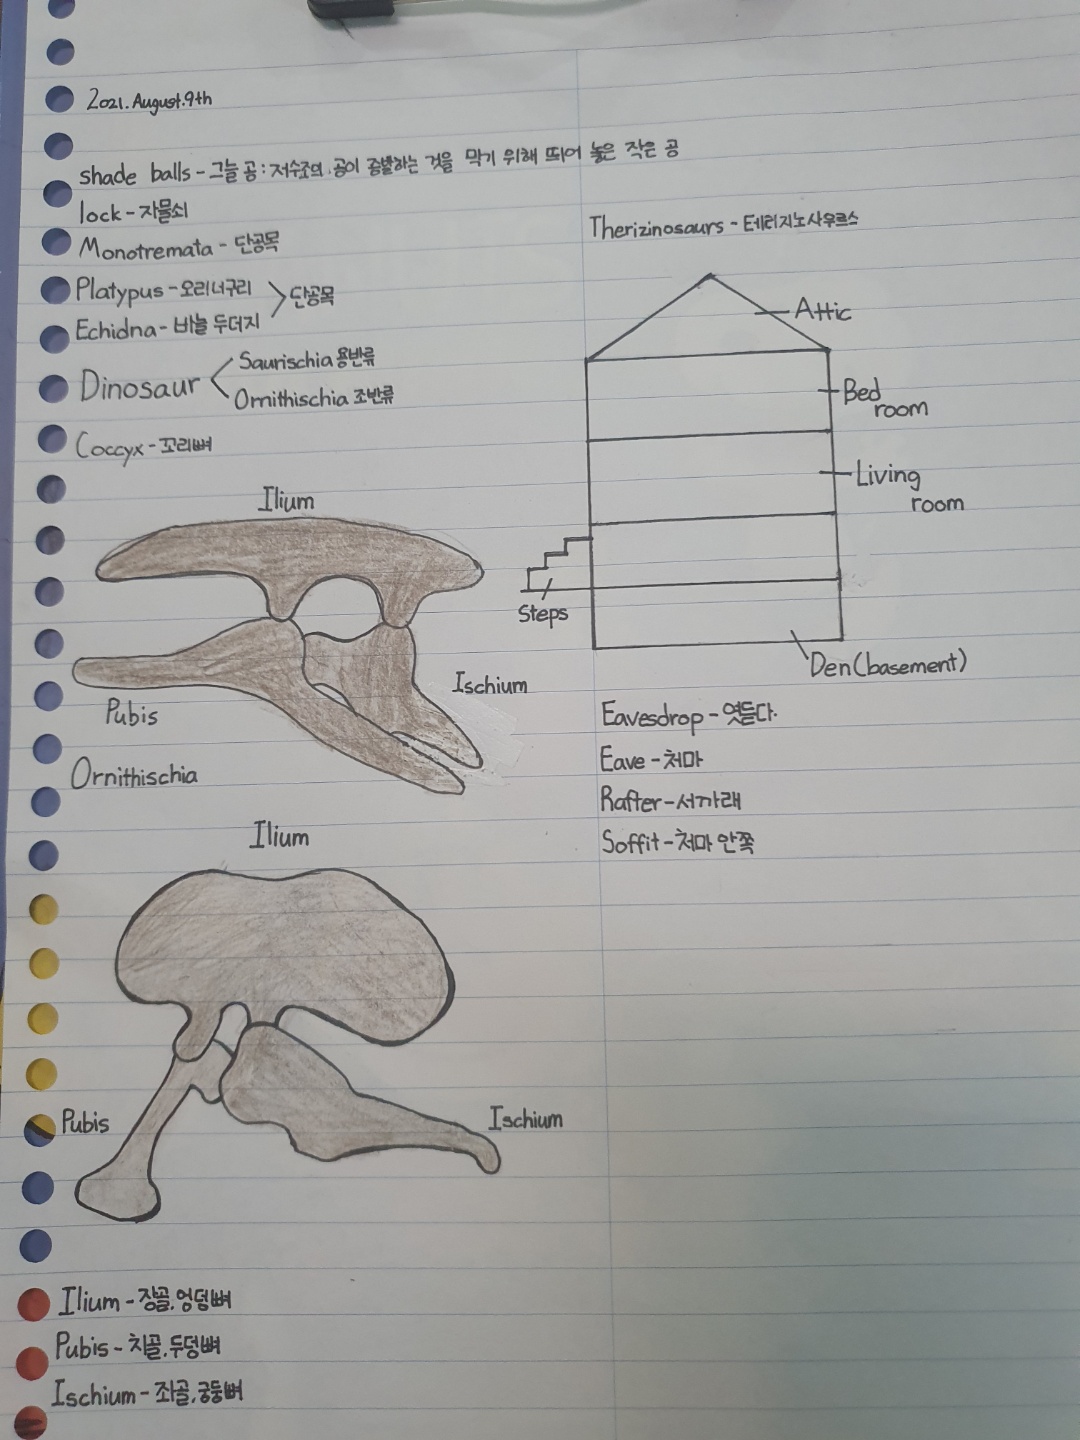 2021.August.9th
shade balls - 그늘 공 : 저수조의 공이 증발하는 것을 막기 위해 띄어 놓은 작은 공
lock - 자물쇠
Monotremata - 단공목
Platypus - 오리너구리
Echidna - 바늘 두더지
단공목
Dinosaur
Saurischia 용반류
Ornithischia 조반류
Coccyx - 꼬리뼈
Ilium
Pubis
Ischium
Ornithischia
Ilium
Pubis
Ischium
Ilium - 장골, 엉덩뼈
Pubis - 치골, 두덩뼈
Ischium - 좌골, 궁둥뼈
Therizinosaurs - 테리지노사우르스
Attic
Bed
room
Living
room
Steps
Den(basement)
Eavesdrop - 엿듣다.
Eave - 처마
Rafter - 서까래
Soffit - 처마 안쪽